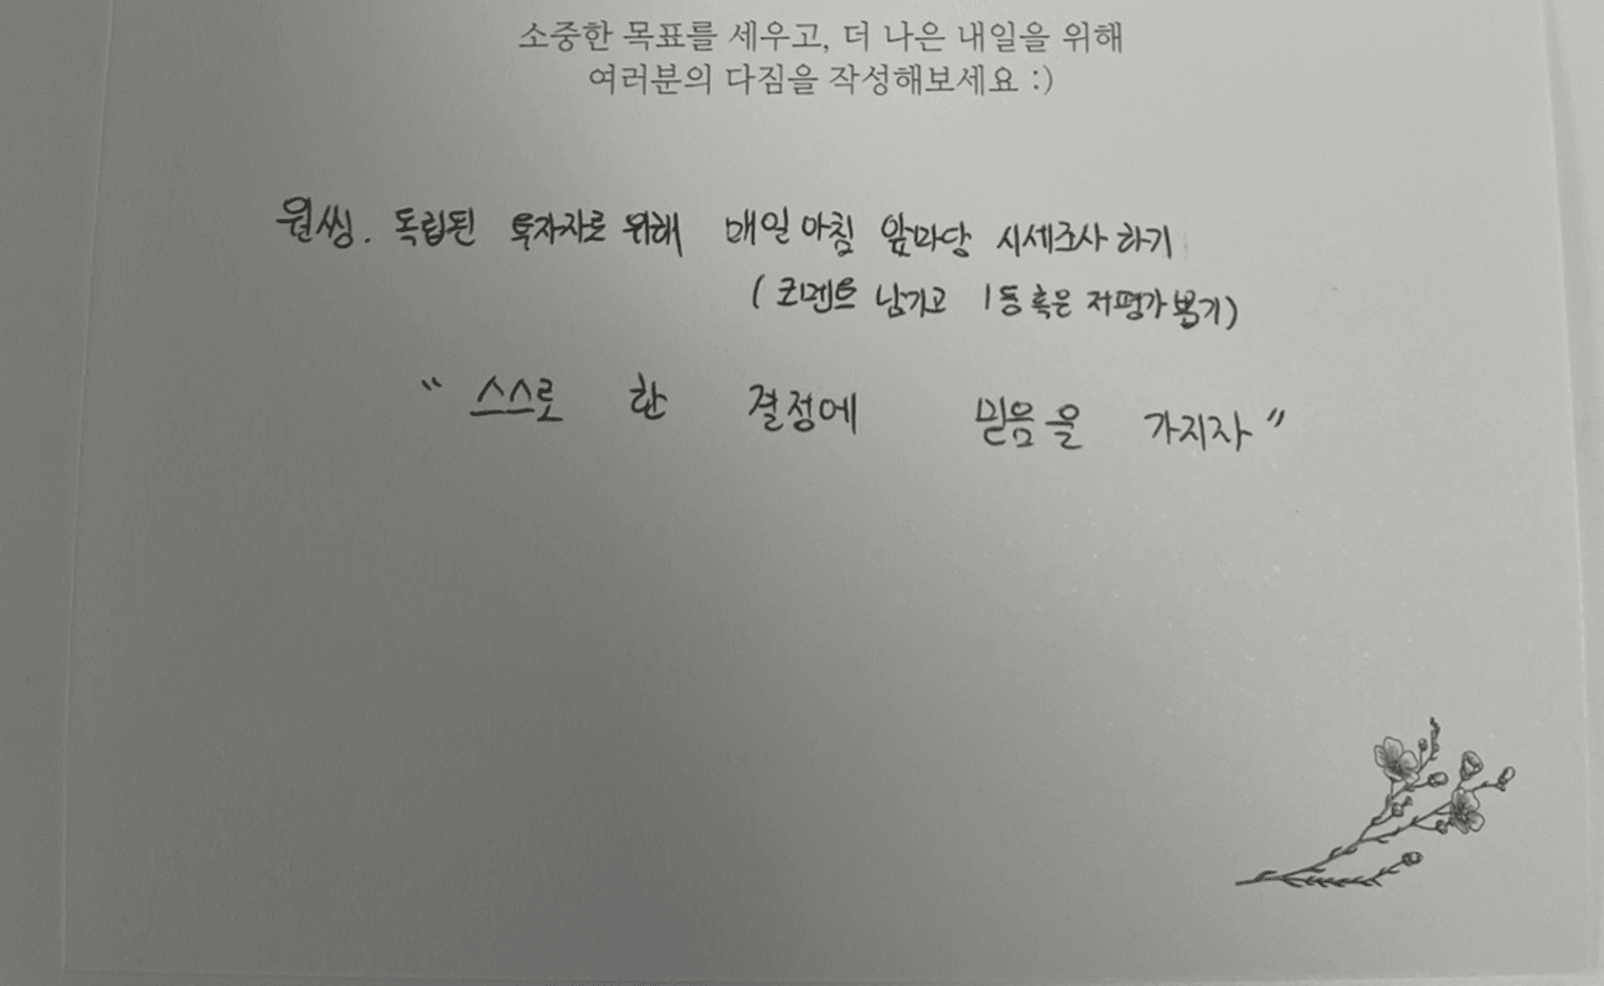 소중한 목표를 세우고, 더 나은 내일을 위해
여러분의 다짐을 작성해보세요 :)
원씽. 독립된 투자자로 위해 매일 아침 앞마당 시세조사 하기
(코멘트 남기고 1등 혹은 저평가 뽑기)
“스스로 한 결정에 믿음을 가지자”